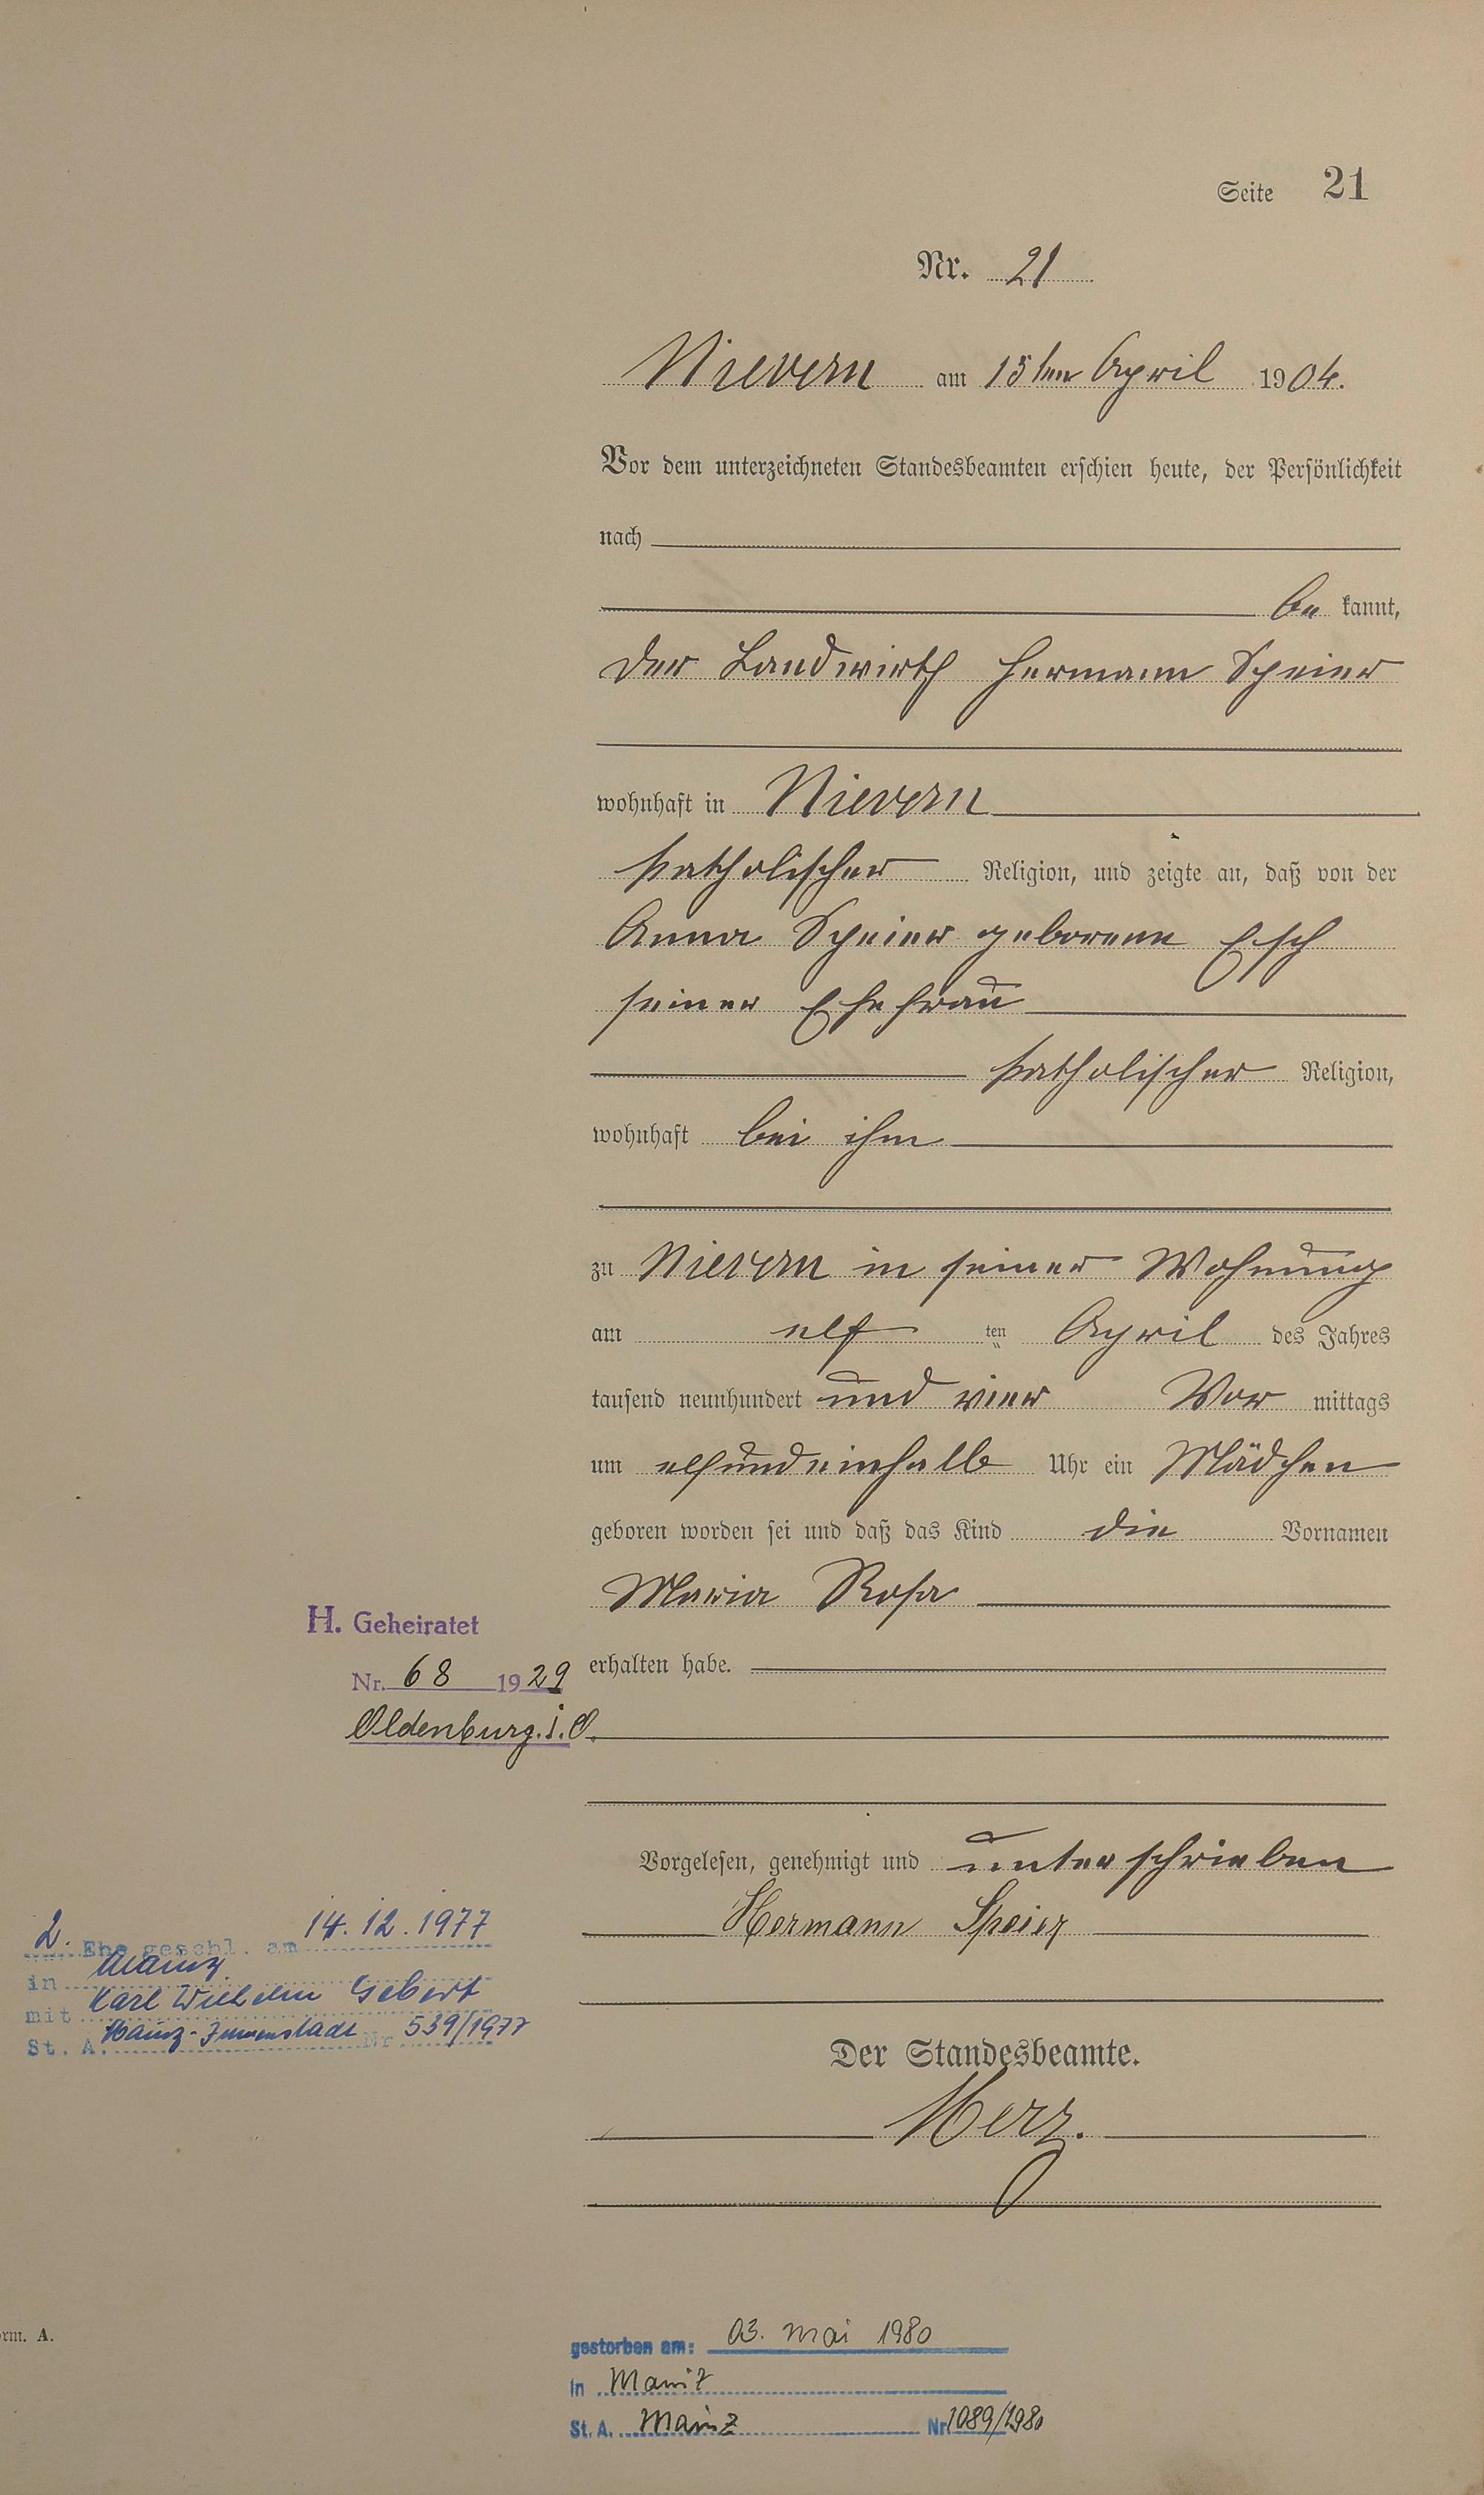 Seite 21
Nr. 21
Nievern am 15ten April 1904.
Vor dem unterzeichneten Standesbeamten erschien heute, der Persönlichkeit
nach
be kannt,
der Landwirth Hermann Speier
wohnhaft in Nievern
katholischer Religion, und zeigte an, daß von der
Anna Speier geborene Esch
seiner Ehefrau
katholischer Religion,
wohnhaft bei ihm
zu Nievern in seiner Wohnung
am elf ten April des Jahres
tausend neunhundert und vier Vor mittags
um elfundeinhalb Uhr ein Mädchen
geboren worden sei und daß das Kind die Vornamen
Maria Rosa
H. Geheiratet
Nr. 68 1929
Oldenburg.i.O.
erhalten habe.
Vorgelesen, genehmigt und unterschrieben
Hermann Speier
2. Ehe geschl. am 14.12.1977
in Mainz
mit Karl Wilhelm Gebert
St. A. Mainz- Nr 539/1977
Der Standesbeamte.
Herz.
orm. A.
gestorben am: 03. Mai 1980
in Mainz
St. A. Mainz Nr 1089/1980